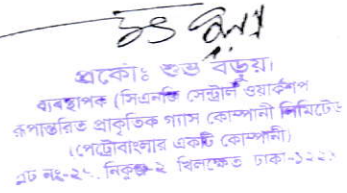 প্রকৌঃ শুভ বড়ুয়া
ব্যবস্থাপক (সিএনজি সেন্ট্রাল ওয়ার্কশপ
রূপান্তরিত প্রাকৃতিক গ্যাস কোম্পানী লিমিটেড
(পেট্রোবাংলার একটি কোম্পানী)
প্লট নং-২৭, নিকুঞ্জ-২ খিলক্ষেত ঢাকা-১২২৯